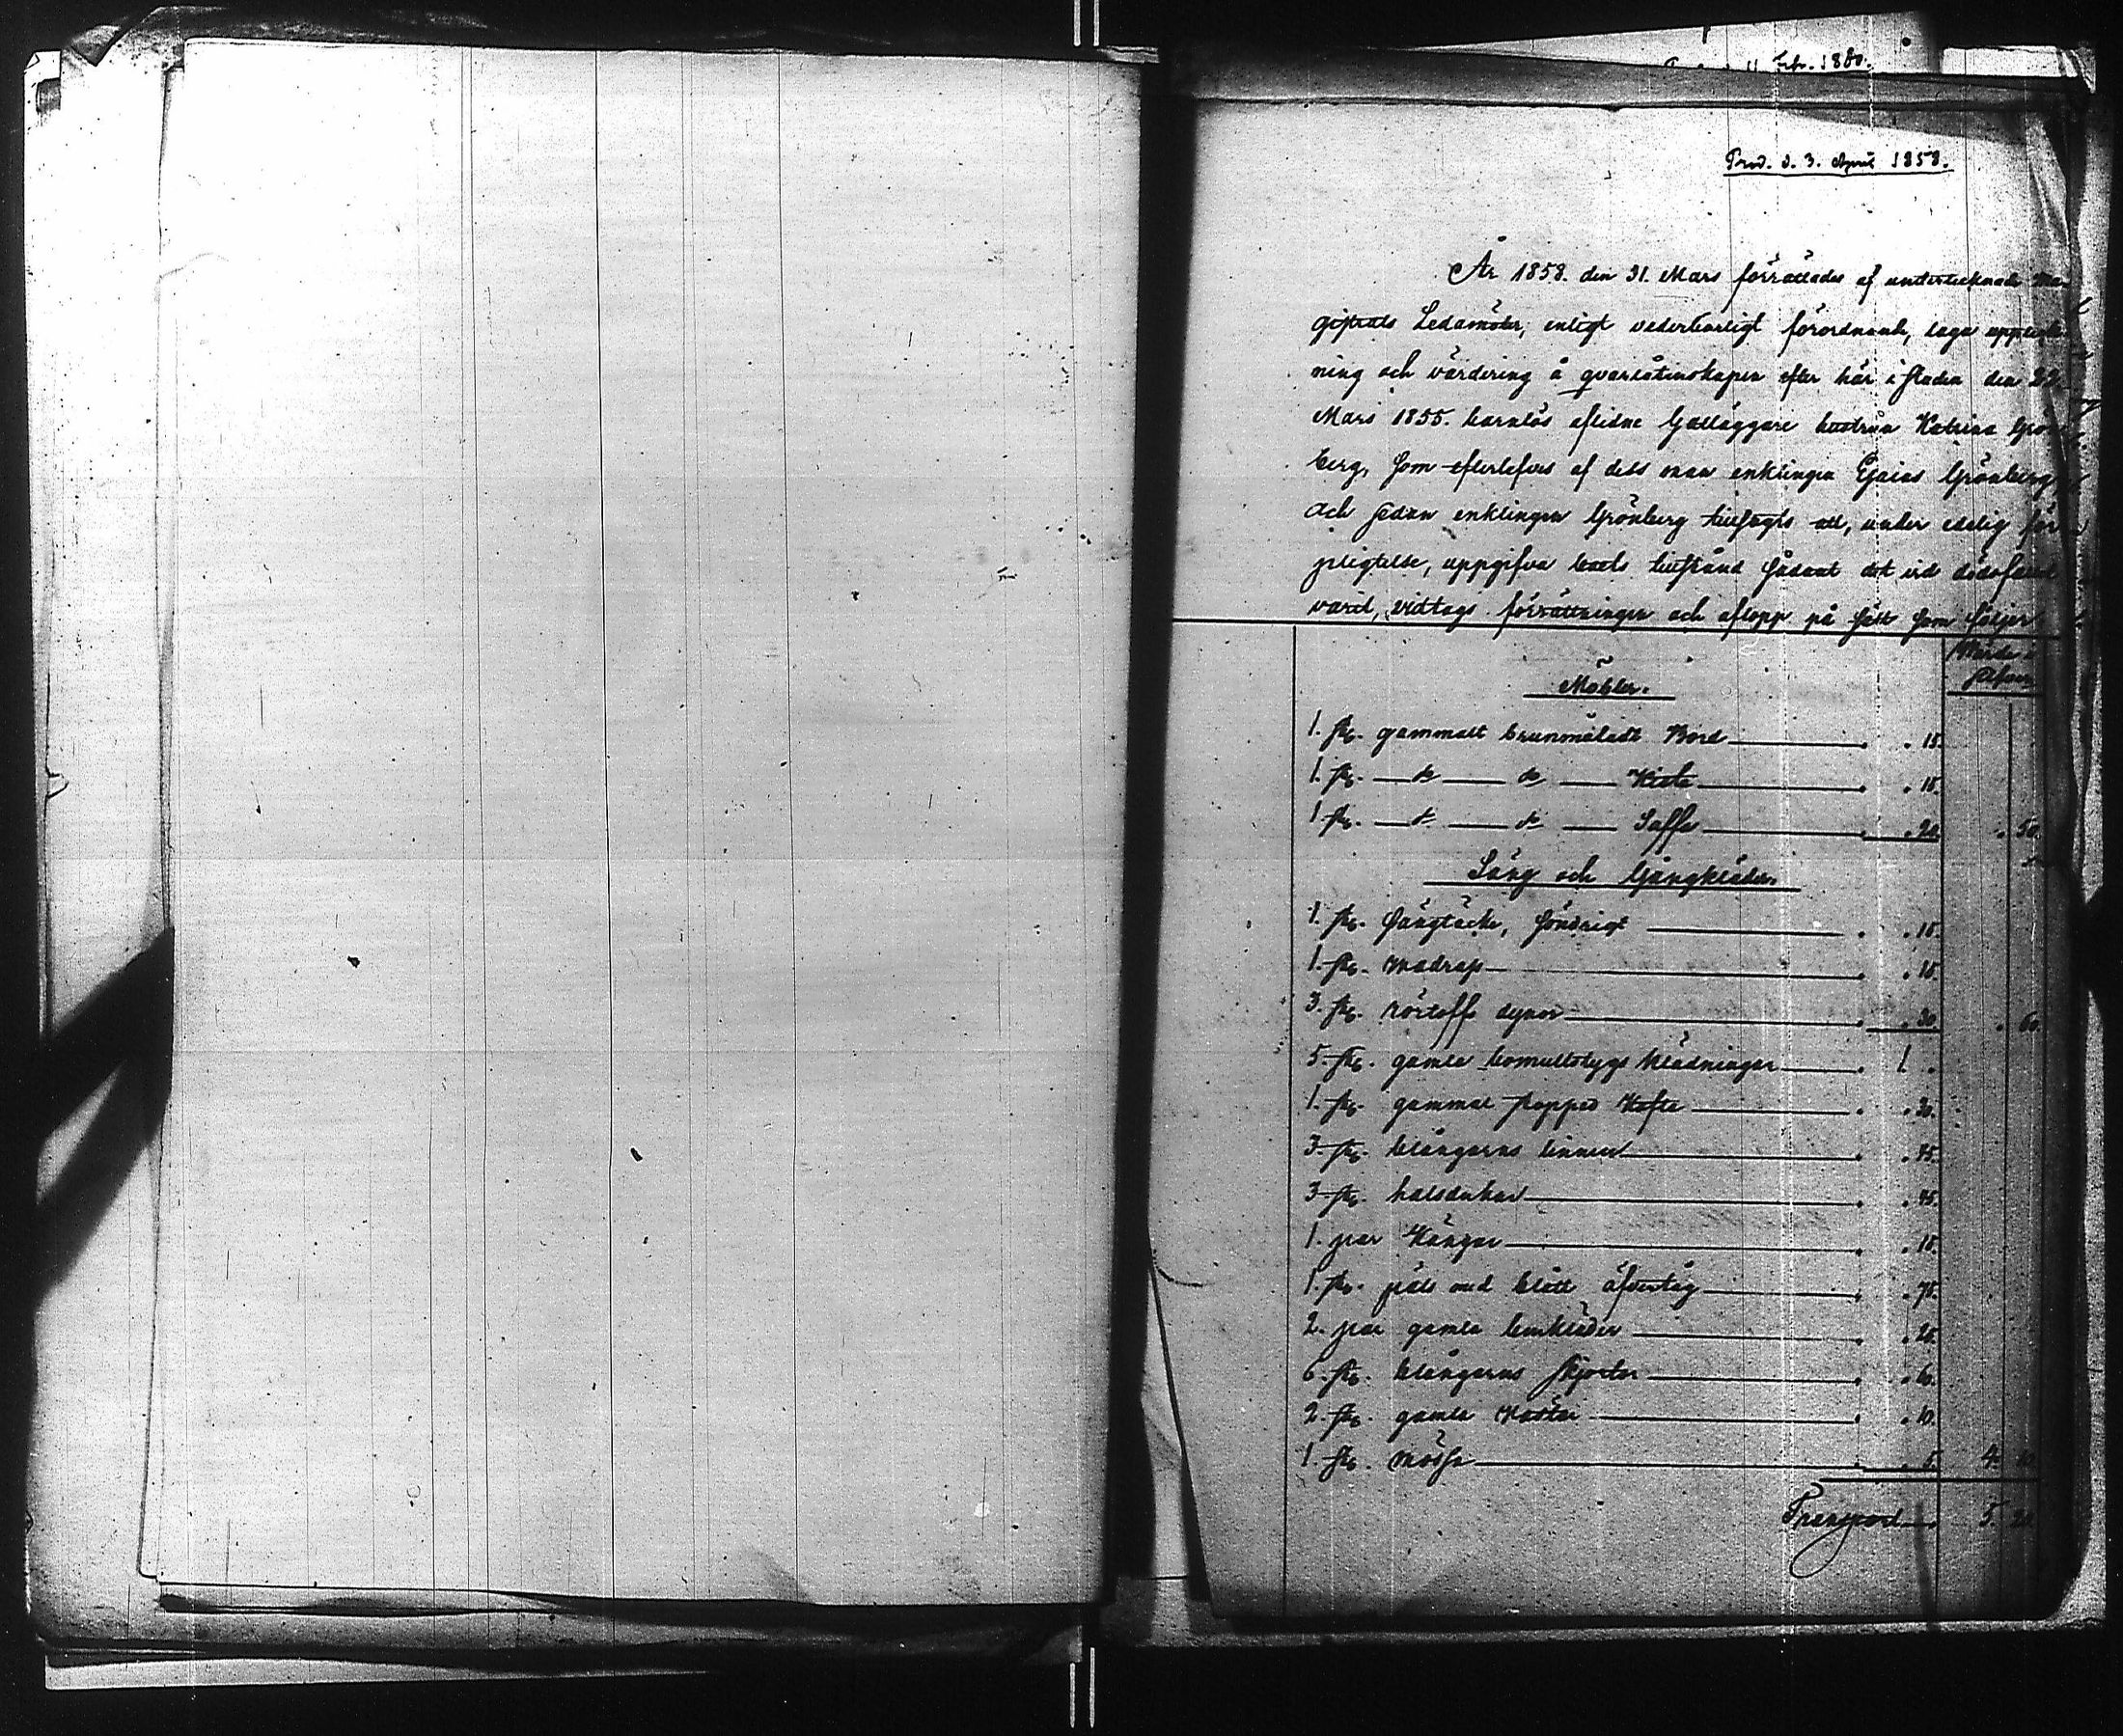 Febr. 1880.
Prod. d. 3. April 1858.
År 1858. den 31. Mars förrättades af undertecknade Ma-
gistrats Ledamöter, enligt vederbörligt förordnande, laga uppteck-
ning och värdering å qvarlåtenskapen efter här i staden den 22.
Mars 1855. barnlös aflidne Gatläggare hustrun Katrina Grön-
berg, som efterlefves af dess man enklingen Esaias Grönberg,
och sedan enklingen Grönberg tillsagts att, under edelig för-
pligtelse, uppgifva boets tillstånd sådant det vid dödsfallet
varit, vidtogs förrättningen och aflopp på sätt som följer
Värde i
Silfver
Möbler.
1. st. gammalt brunmåladt Bord . . 15.
1. st. — do — do — Kista . . 15.
1. st. — do — do — Soffa . . 20. . 50.
Säng och Gångkläder.
1. st. sängtäcke, söndrigt . . 15.
1. st. madrass . . 15.
3. st. dynor . . 30. . 60.
5. st. gamla bomullstygs Klädningar . 1 .
1. st. gammal stoppad Kofta . . 30.
3. st. blångarns linnen . . 45.
3. st. halsdukar . . 45.
1. par Kängor . . 15.
1. st. päls med blått öfvertåg . . 75.
2. par gamla benkläder . . 20.
6. st. blångarns skjortor . . 60.
2. st. gamla Västar . . 10.
1. st. mössa . . 5. 4. 10.
Transport . 5. 20.